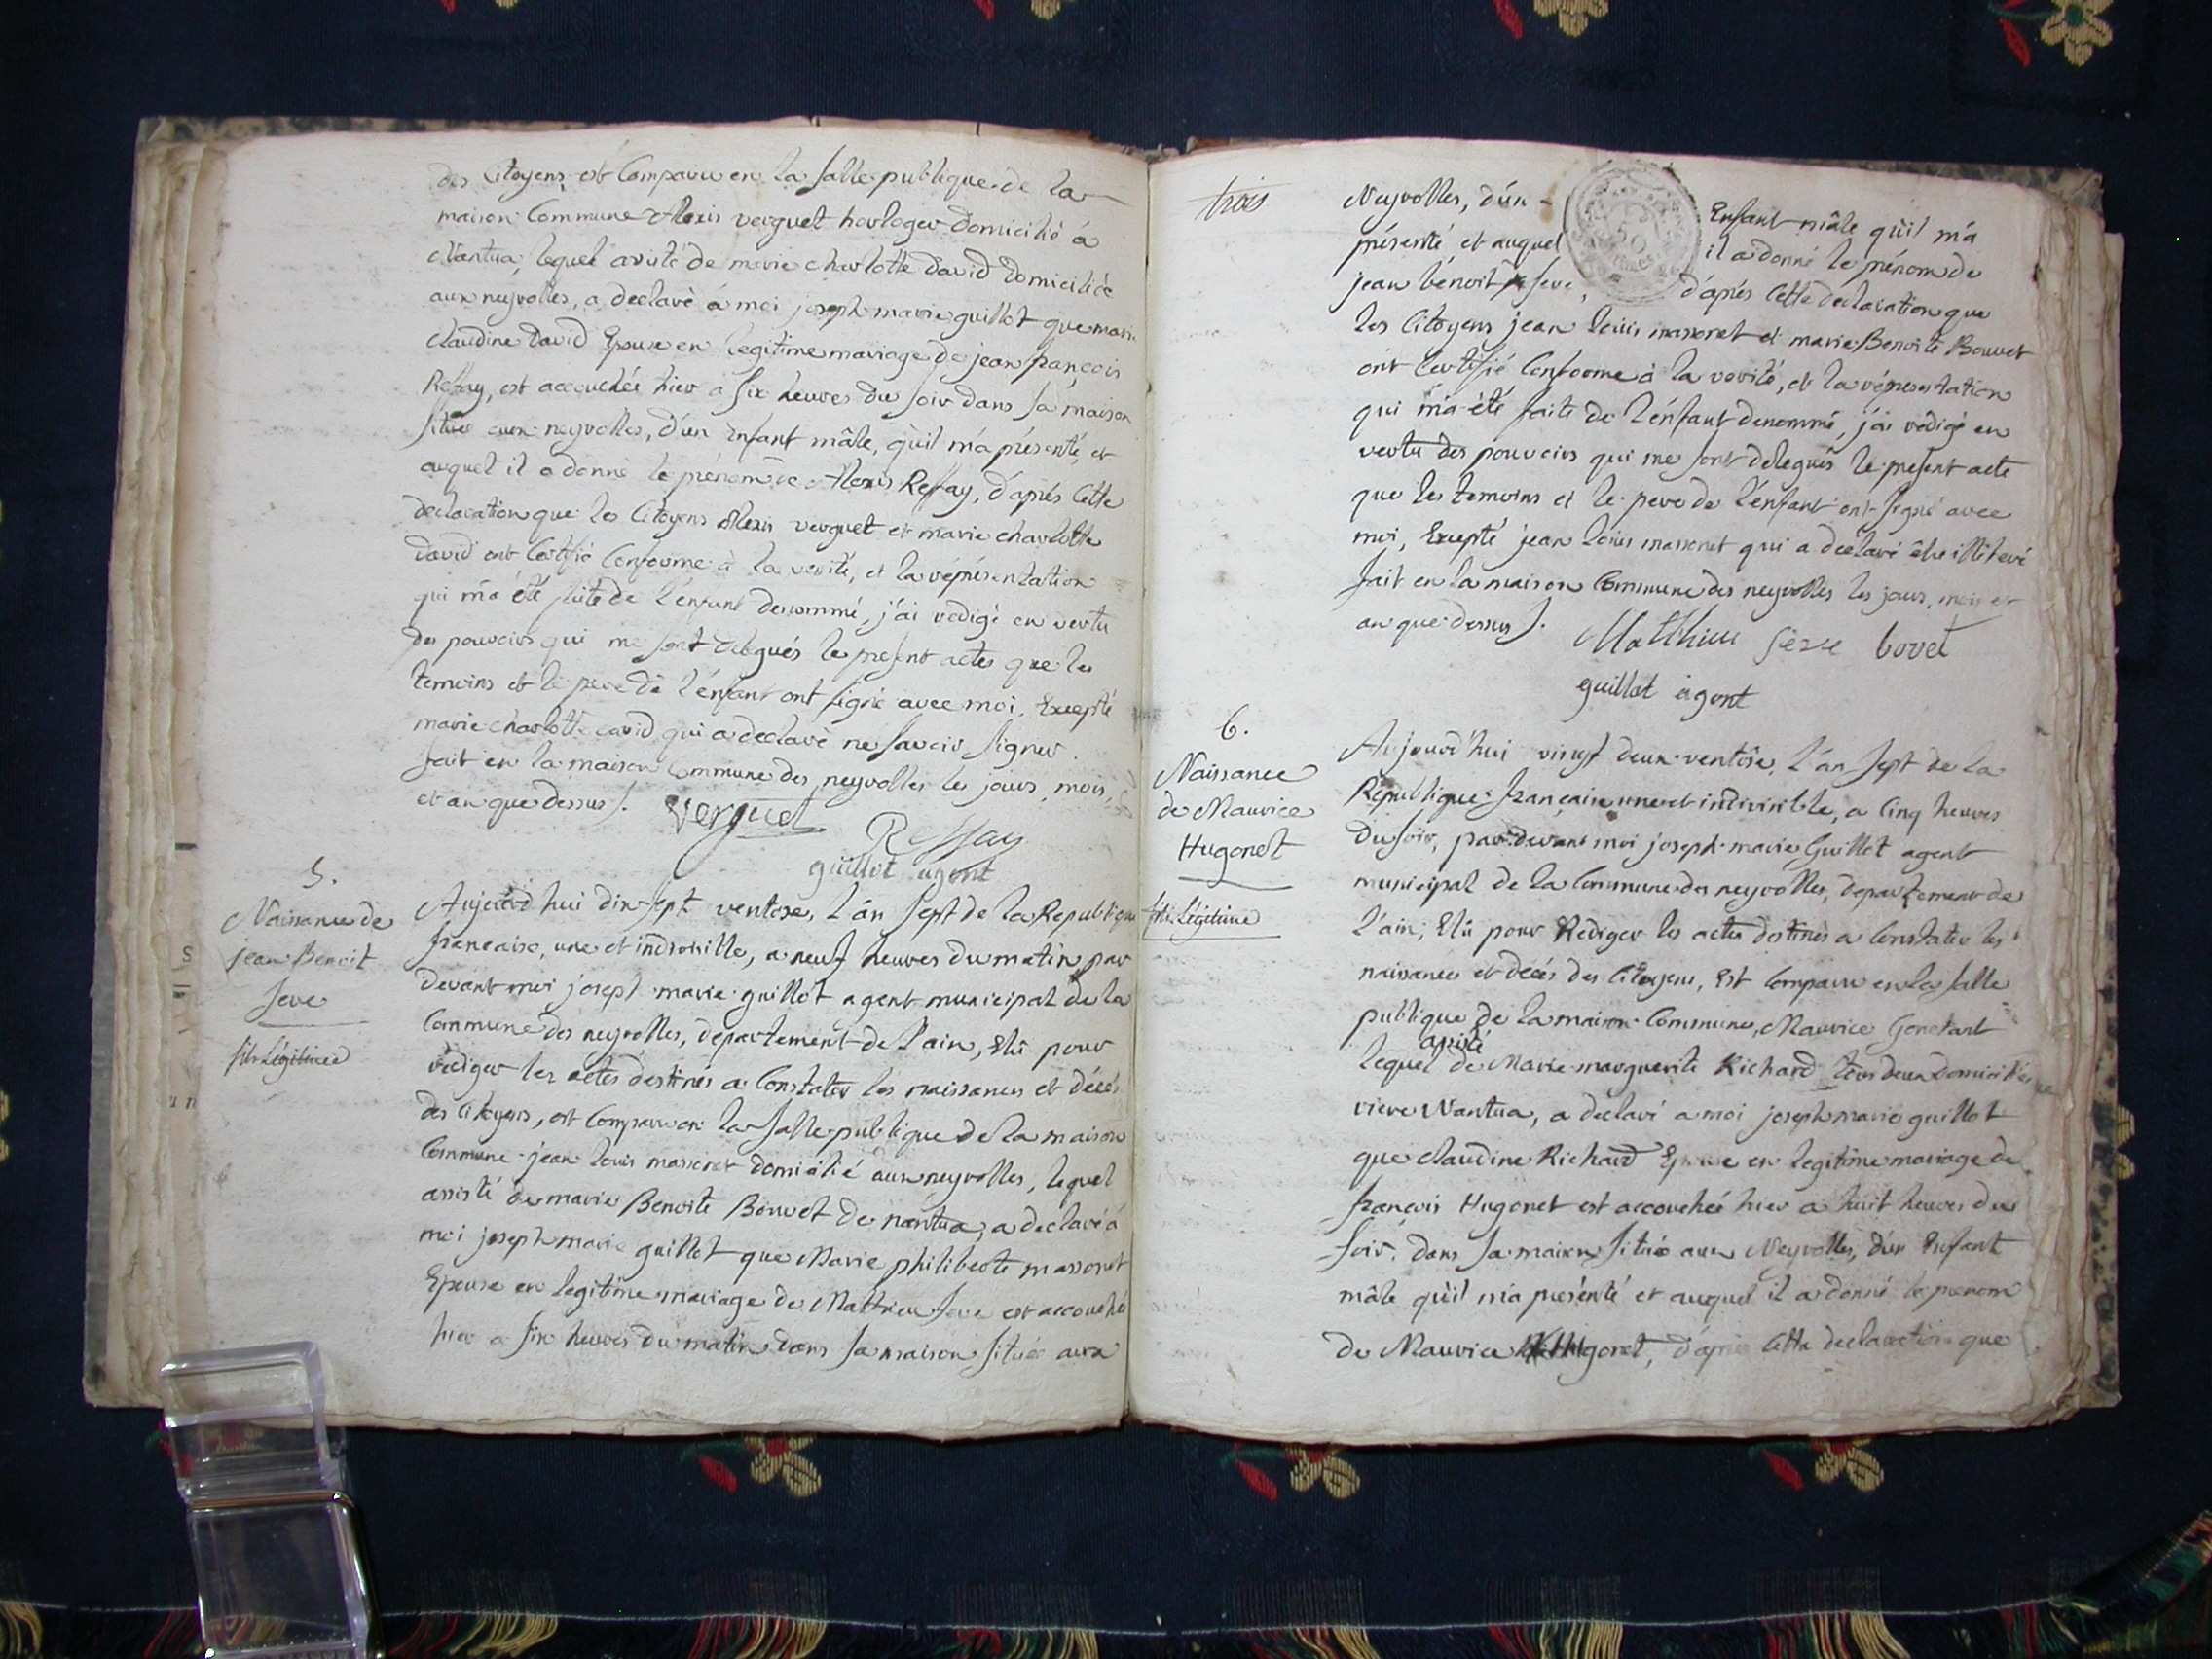 des Citoyens, est Comparu en la salle publique de la
maison Commune Alexis verguet horloger domicilié á
Nantua, lequel assisté de marie charlotte david domiciliée
aux neyrolles, a declaré á moi joseph marie guillot que marie
Claudine David Epouse en legitime mariage de jean françois
Reffay, est accouchée hier a six heures du soir dans sa maison
située aux neyrolles, d'un Enfant mâle, qu'il m'a présenté, et
auquel il a donné le prénom de Alexis Reffay, d'aprés Cette
declaration que les Citoyens Alexis verguet et marie charlotte
david ont Certifié Conforme à la verité, et la réprésentation
qui m'a été faite de l'enfant denommé, j'ai rédigé en vertu
des pouvoirs qui me sont delegués le present actes que les
temoins et le pere de l'énfant ont signé avec moi, Excepté
marie charlotte david qui a declaré ne savoir signer.
fait en la maison Commune des neyrolles les jours, mois,
et an que dessus /. verguet
Reffay
guillot agent
5.
Naissance de
jean Benoit
Seve
fils Légitime
Aujourd'hui dix-sept ventose, l'án sept de la Republique
francaise, une et indivisible, a neuf heures du matin par
devant moi joseph marie guillot agent municipal de la
Commune des neyrolles, departement de l'ain, Elû pour
rediger les actes destinés a Constater les naissances et décés
des Citoyens, est Comparu en la salle publique de la maison
Commune jean louis massonet domicilié aux neyrolles, lequel
assisté de marie Benoite Bouvet de nantua, a declaré á
moi joseph marie guillot que Marie philiberte massonet
Epouse en legitime mariage de Matthieu Seve est accouché
hier a six heures du matin dans sa maison située aux
trois
Neyrolles, d'un - Enfant mâle qu'il m'a
présenté et auquel il a donné le prénom de
jean benoit seve, d'aprés Cette declaration que
les Citoyens jean louis massonet et marie Benoite Bouvet
ont Certifié Conforme à la verité, et la répresentation
qui m'a été faite de l'énfant denommé, j'ai rédigé en
vertu des pouvoirs qui me sont delegués le present acte
que les temoins et le pere de l'énfant ont signé avec
moi, Excepté jean louis massonet qui a declaré être illiteré
fait en la maison Commune des neyrolles les jours, mois et
an que dessus /.
Matthieu séve bovet
guillot agent
6.
Naissance
de Maurice
Hugonet
fils Légitime
Aujourd'hui vingt deux ventôse, l'án sept de la
République française une et indivisible, a Cinq heures
du soir, par devant moi joseph marie Guillot agent
municipal de la Commune des neyrolles, departement de
l'ain, Elû pour Rediger les actes destinés a Constater les
naissances et décés des Citoyens, Est Comparu en la salle
publique de la maison Commune, Maurice
assisté
lequel de Marie marguerite Richard tous deux domiciliés
riere Nantua, a declaré a moi joseph marie guillot
que claudine Richard Epouse en legitime mariage de
françois Hugonet est accouchée hier a huit heures du
soir, dans sa maison située aux Neyrolles, d'un Enfant
mâle qu'il m'a présenté et auquel il a donné le prenom
de Maurice Hugonet, d'aprés Cette declaration que